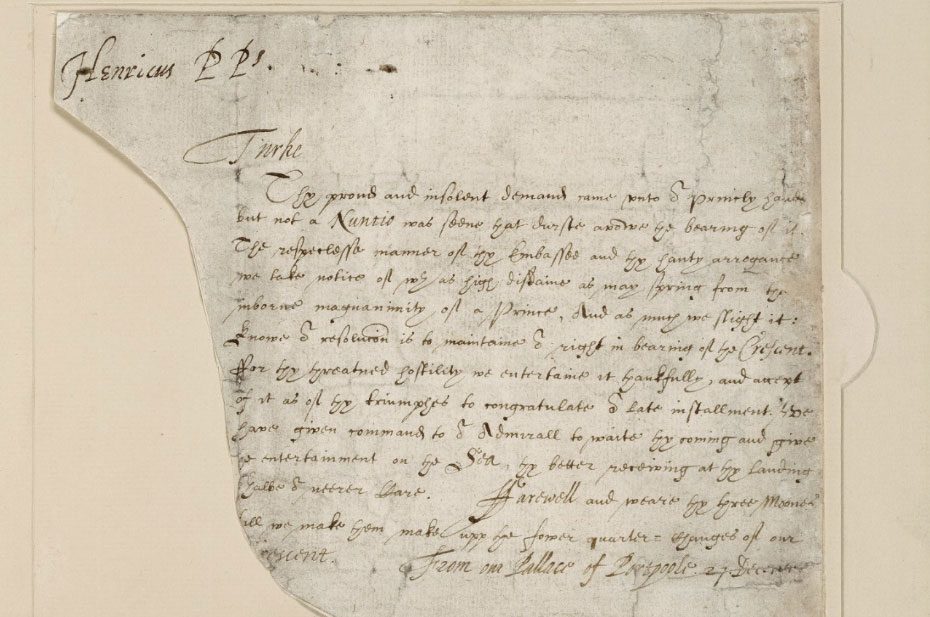 Henricus P Ps.
Turke
Thy proud and insolent demand came unto or Princely hands
but not a Nuntio was seene that durste avowe the bearing of it.
The respectlesse manner of thy Embassee and thy hauty arrogance
we take notice of wth as high disdaine as may spring from the
inborne magnanimity of a Prince, And as much we slight it:
Knowe or resolucon is to maintaine or right in bearing of the Crescent.
For thy threatned hostility we entertaine it thankfully, and accept
of it as of thy triumphes to congratulate or late installment. We
have given command to or Admirall to waite thy coming and give
entertainment on the Sea, thy better receiving at thy landing
shalbe or neerer Care. Farewell and weare thy three Moones
till we make them make upp the fower quarter=changes of our
escent.
From our Pallace of Portpoole. 27. Decem